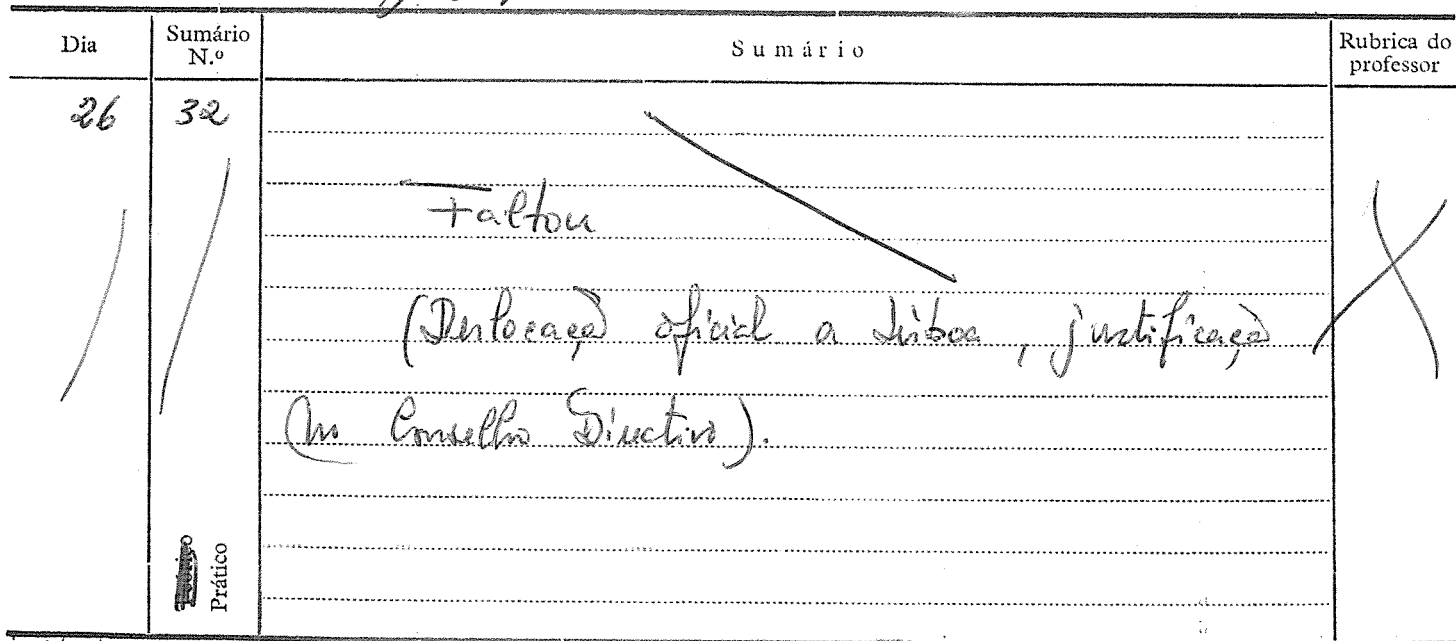 Dia Sumário N.º Sumário Rubrica do professor
26 32
Faltou
(Deslocação oficial a Lisboa, justificação
(no Conselho Directivo).
Prático